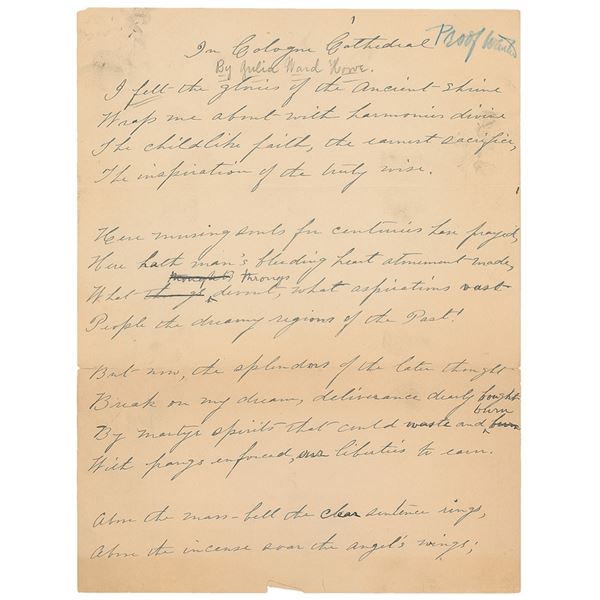 In Cologne Cathedral
Proof wanted
By Julia Ward Howe.
I felt the glories of the Ancient Shrine
Wrap me about with harmonies divine
The childlike faith, the earnest sacrifice,
The inspiration of the truly wise.
Here musing souls for centuries have prayed,
Here hath man's bleeding heart atonement made,
thoughts throngs
What throngs devout, what aspirations vast
People the dreamy regions of the Past!
But now, the splendors of the later thought
Break on my dream, deliverance dearly bought
burn
By martyr spirits that could waste and burn
With pangs enforced, our liberties to earn.
Above the mass-bell the clear sentence rings,
Above the incense soar the angel's wings;